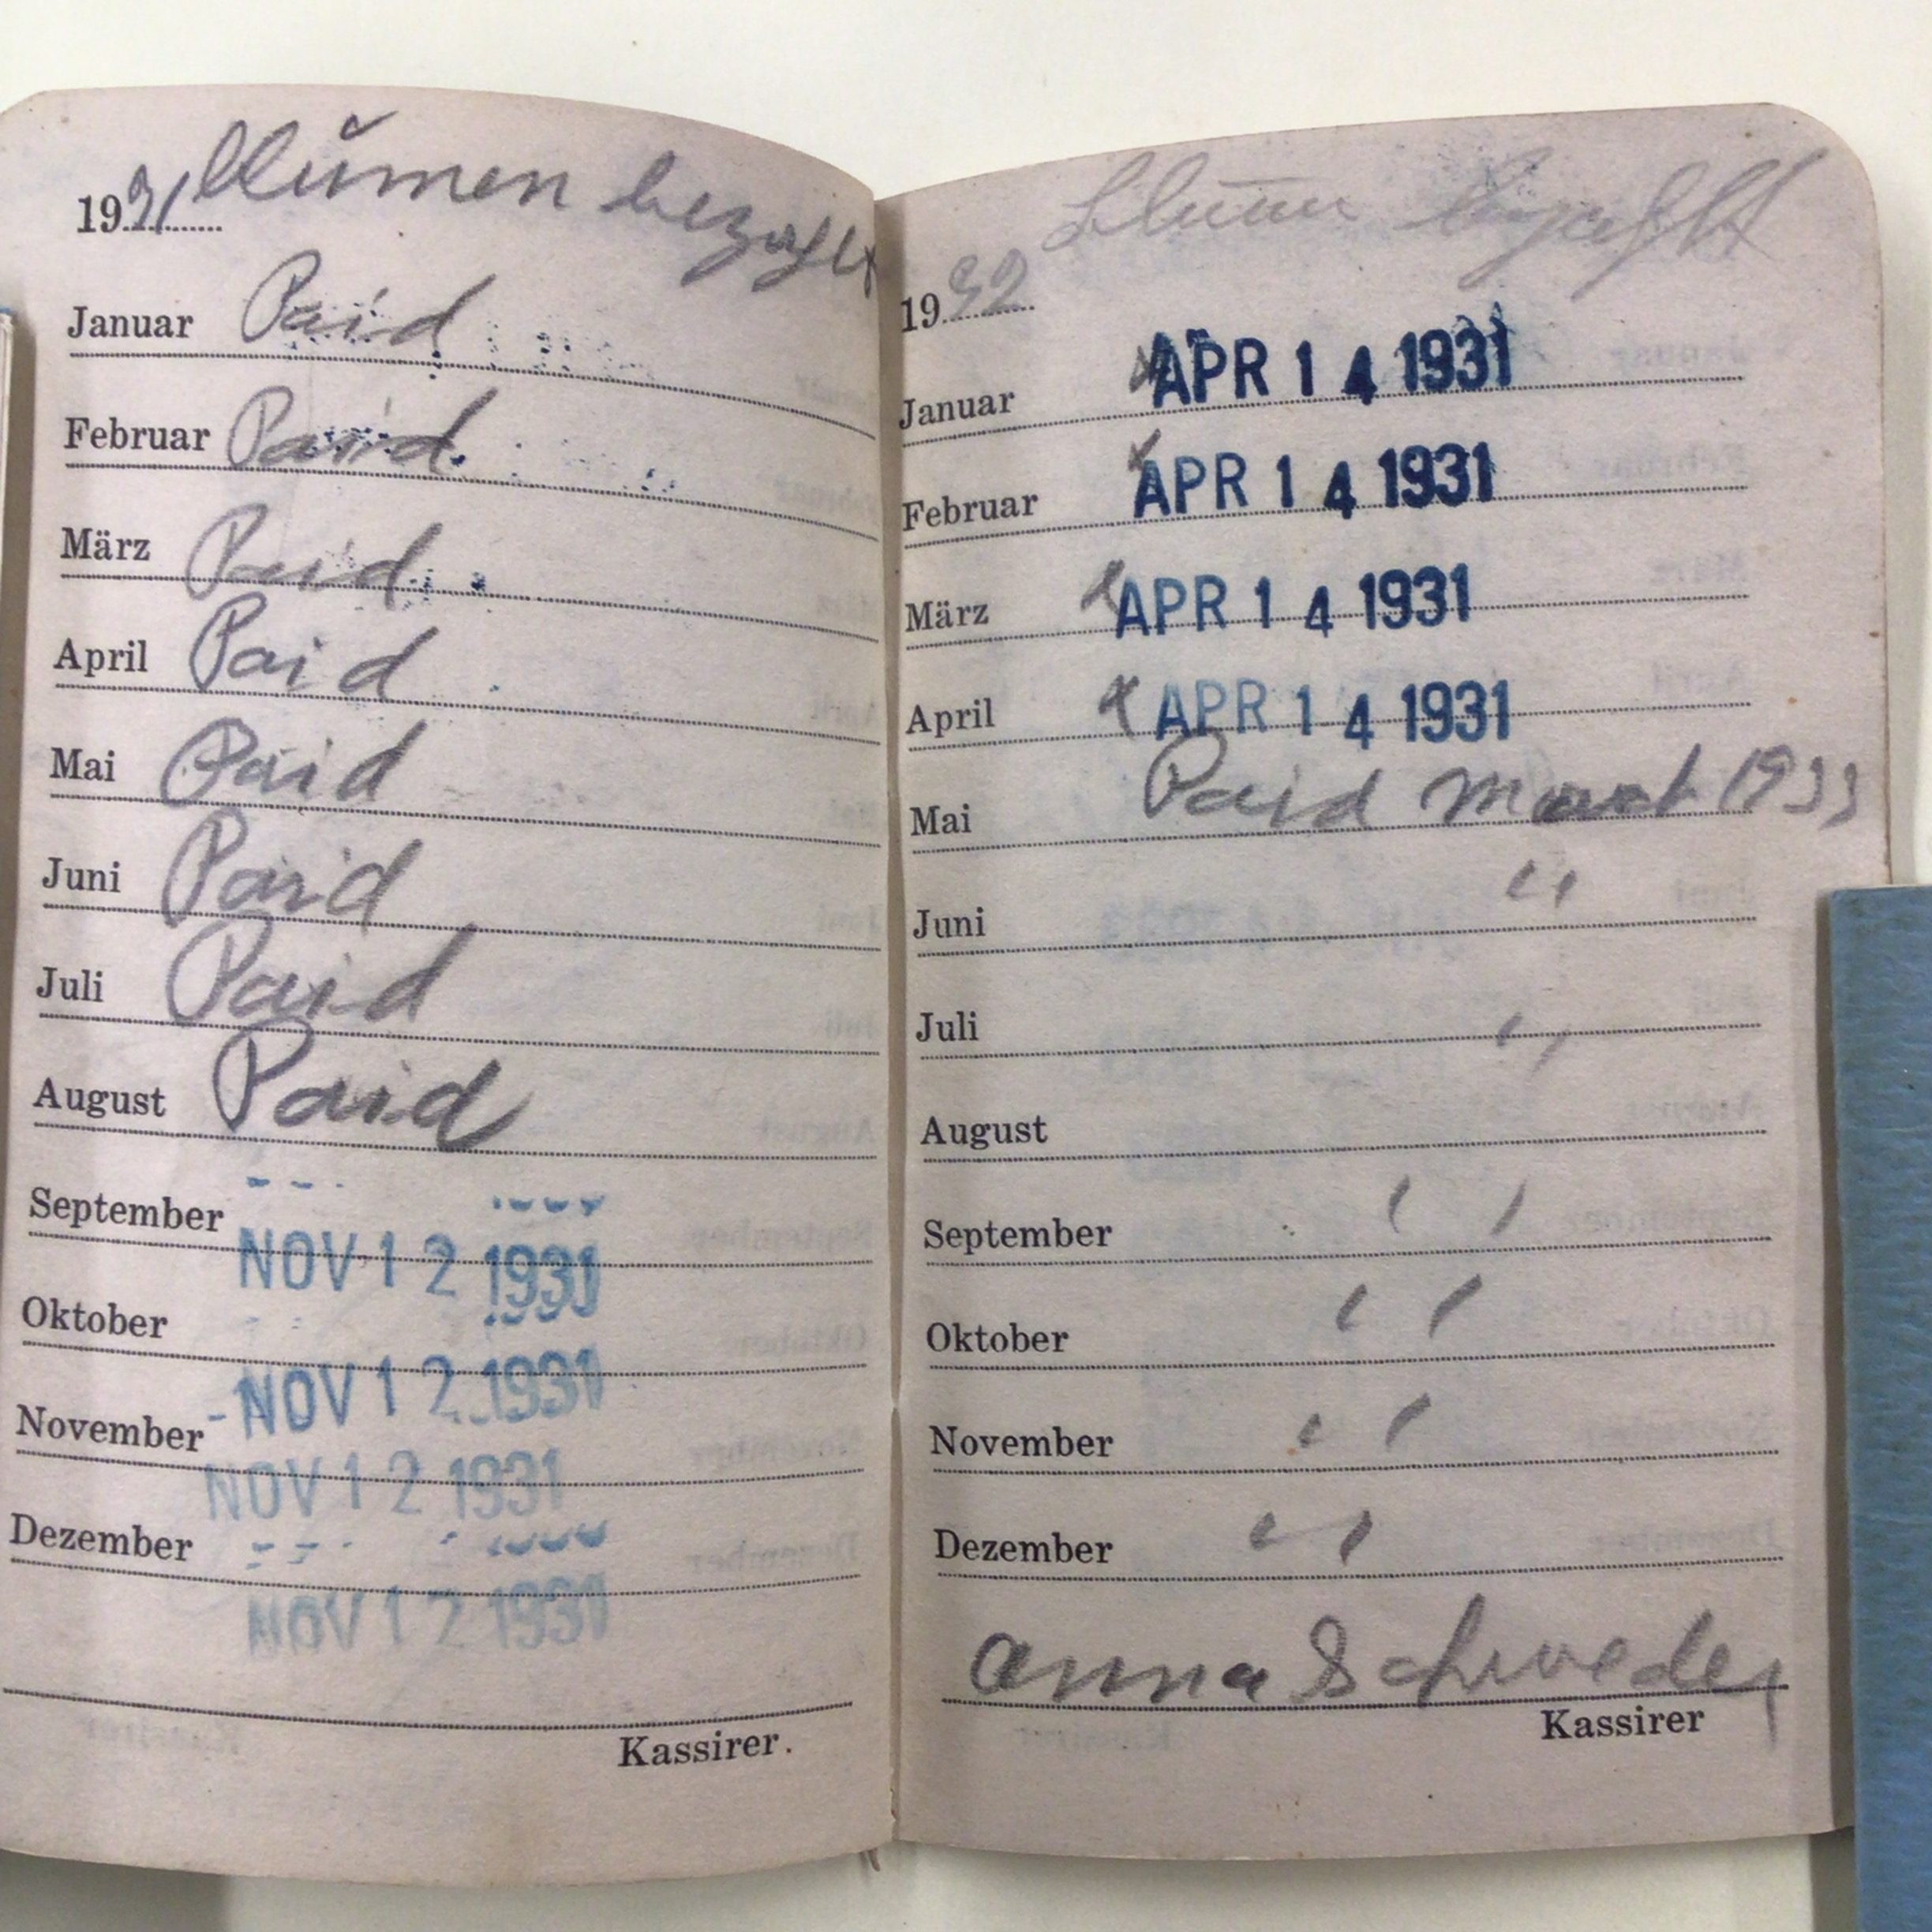 1931 Blumen bezahlt
Januar Paid
Februar Paid
März Paid
April Paid
Mai Paid
Juni Paid
Juli Paid
August Paid
September
NOV 12 1931
Oktober
NOV 12 1931
November
NOV 12 1931
Dezember
NOV 12 1931
Kassirer.
Blumen bezahlt
1932
Januar APR 14 1931
Februar APR 14 1931
März APR 14 1931
April APR 14 1931
Mai Paid 1933
Juni "
Juli "
August
September "
Oktober "
November "
Dezember "
Anna Schweder
Kassirer